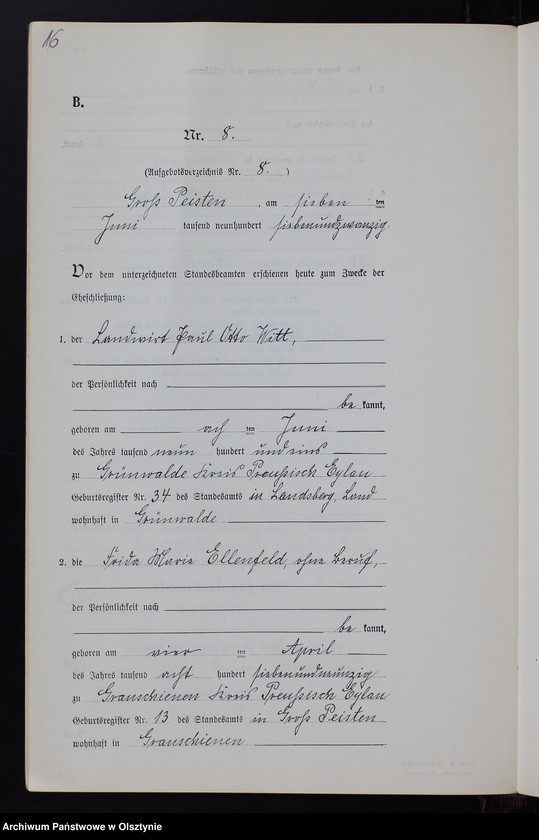 16
B.
Nr. 8.
(Aufgebotsverzeichnis Nr. 8. )
Groß Peisten, am sieben ten
Juni tausend neunhundert siebenundzwanzig.
Vor dem unterzeichneten Standesbeamten erschienen heute zum Zwecke der
Eheschließung:
1. der Landwirt Paul Otto Witt,
der Persönlichkeit nach
be kannt,
geboren am ach ten Juni
des Jahres tausend neun hundert und eins
zu Grünwalde Kreis Preußisch Eylau
Geburtsregister Nr. 34 des Standesamts in Landsberg, Land
wohnhaft in Grünwalde
2. die Frida Marie Ellenfeld, ohne Beruf,
der Persönlichkeit nach
be kannt,
geboren am vier ten April
des Jahres tausend acht hundert siebenundneunzig
zu Grauschienen Kreis Preußisch Eylau
Geburtsregister Nr. 13 des Standesamts in Groß Peisten
wohnhaft in Grauschienen
Archiwum Państwowe w Olsztynie